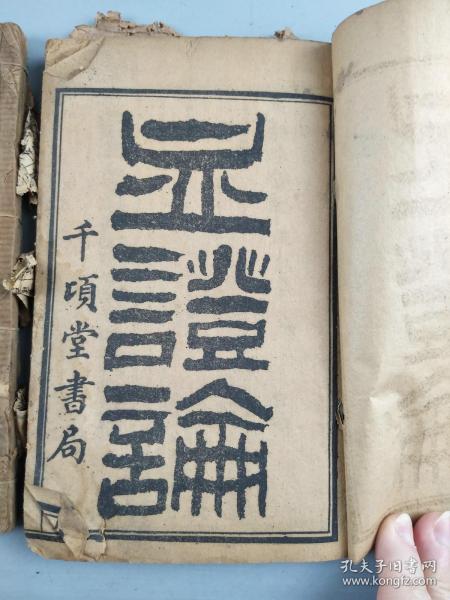 血證論
千頃堂書局
孔夫子旧书网
www.kongfz.com